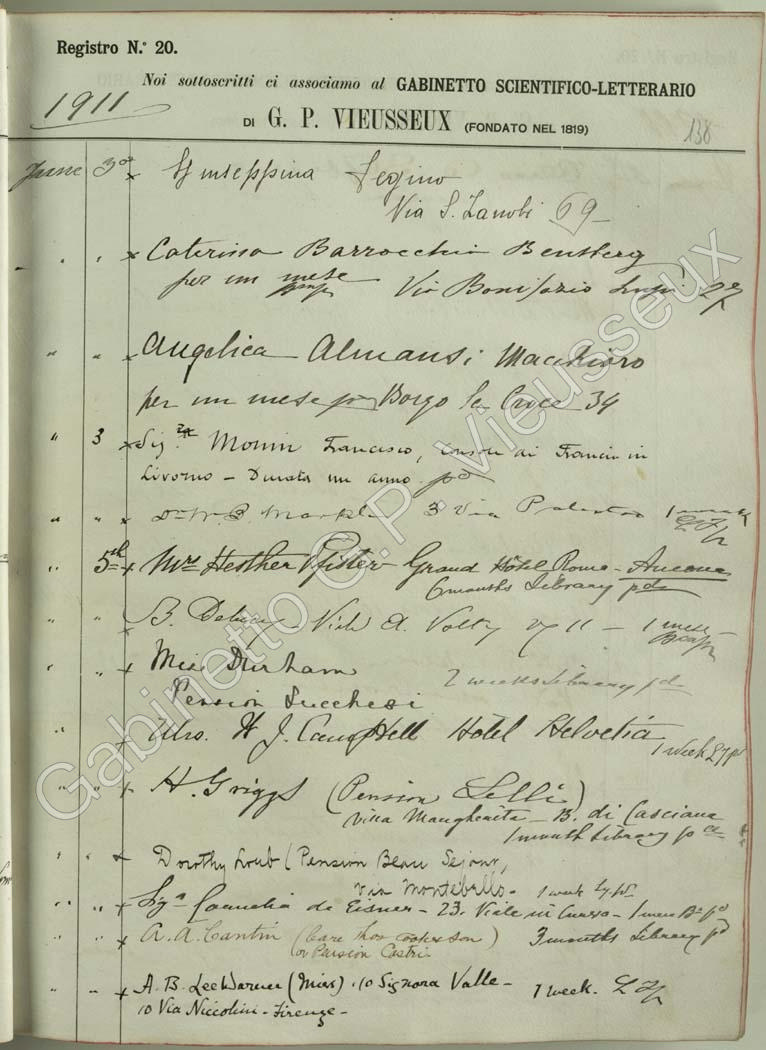 Registro N.° 20.
Noi sottoscritti ci associamo al GABINETTO SCIENTIFICO-LETTERARIO
1911
DI G. P. VIEUSSEUX (FONDATO NEL 1819)
138
June 3d x Giuseppina Segino
Via S. Zanobi 69
" " x Caterina Barrocchia Bensberg
per un mese Via Bonifazio
" " x Angelica Almansi Macchioro
per un mese Borgo la Croce 34
" 3 x Sigr Monin Francesco, console di Francia in
Livorno - Durata un anno. pd
" " x Dr W. B. 3 Via Palestro 1 week
5th x Mrs Hesther Pfister Grand Hôtel Roma - Ancona
6 months Library pd
" x B. Viale A. Volta 11 - 1 mese
" " x Miss Durham 2 weeks Library pd
Pension Lucchesi
" x Mrs. W J. Campbell Hôtel Helvetia
1 week
" " x H. Griggs (Pension Lelli)
Villa Margherita - B. di Casciana
1 month Library pd
" " x Dorothy (Pension Beau Sejour,
Via Montebello - 1 week
" " x Sigra Cornelia de Eisner - 23. Viale in Curva - 1 mese pd
" " x A. A. Cantin (Care Thos Cook & Son) 3 months Library pd
or Pension Castri
" " x A. B. Lee Warner (Miss). Signora Valle - 1 week.
10 Via Niccolini - Firenze -
Gabinetto G.P. Vieusseux